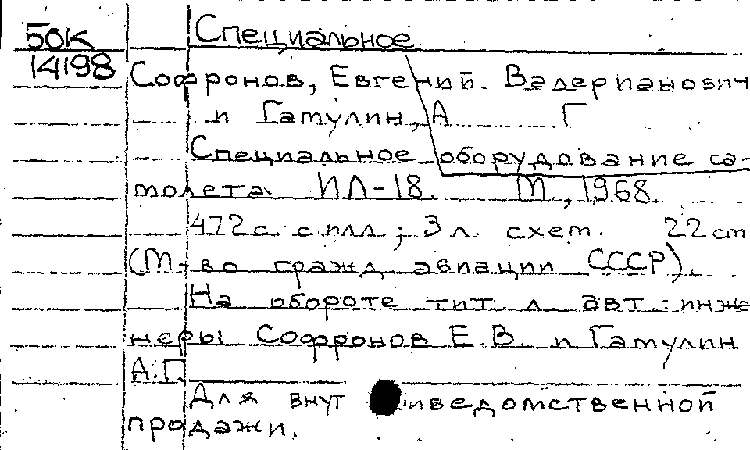 50К Специальное
14198 Софронов, Евгений Валерианович
и Гатулин, А Г
Специальное оборудование са-
молета ИЛ-18. М, 1968.
472с. с илл; 3 л. схем. 22 cm
(М-во гражд авиации СССР).
На обороте тит л авт: инже
неры Софронов Е.В. и Гатулин
А.Г.
Для внут ведомственной
продажи.